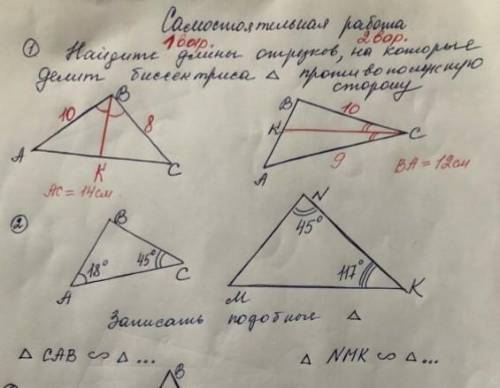 Самостоятельная работа
1 вар. 2 вар.
① Найдите длины отрезков, на которые
делит биссектриса △ противоположную
сторону
B
10
8
A
K
C
AC = 14 см
B
10
K
C
A
9
BA = 12 см
②
B
18°
45°
A
C
N
45°
117°
M
K
Записать подобные △
△ CAB ∽ △ ...
△ NMK ∽ △ ...
B